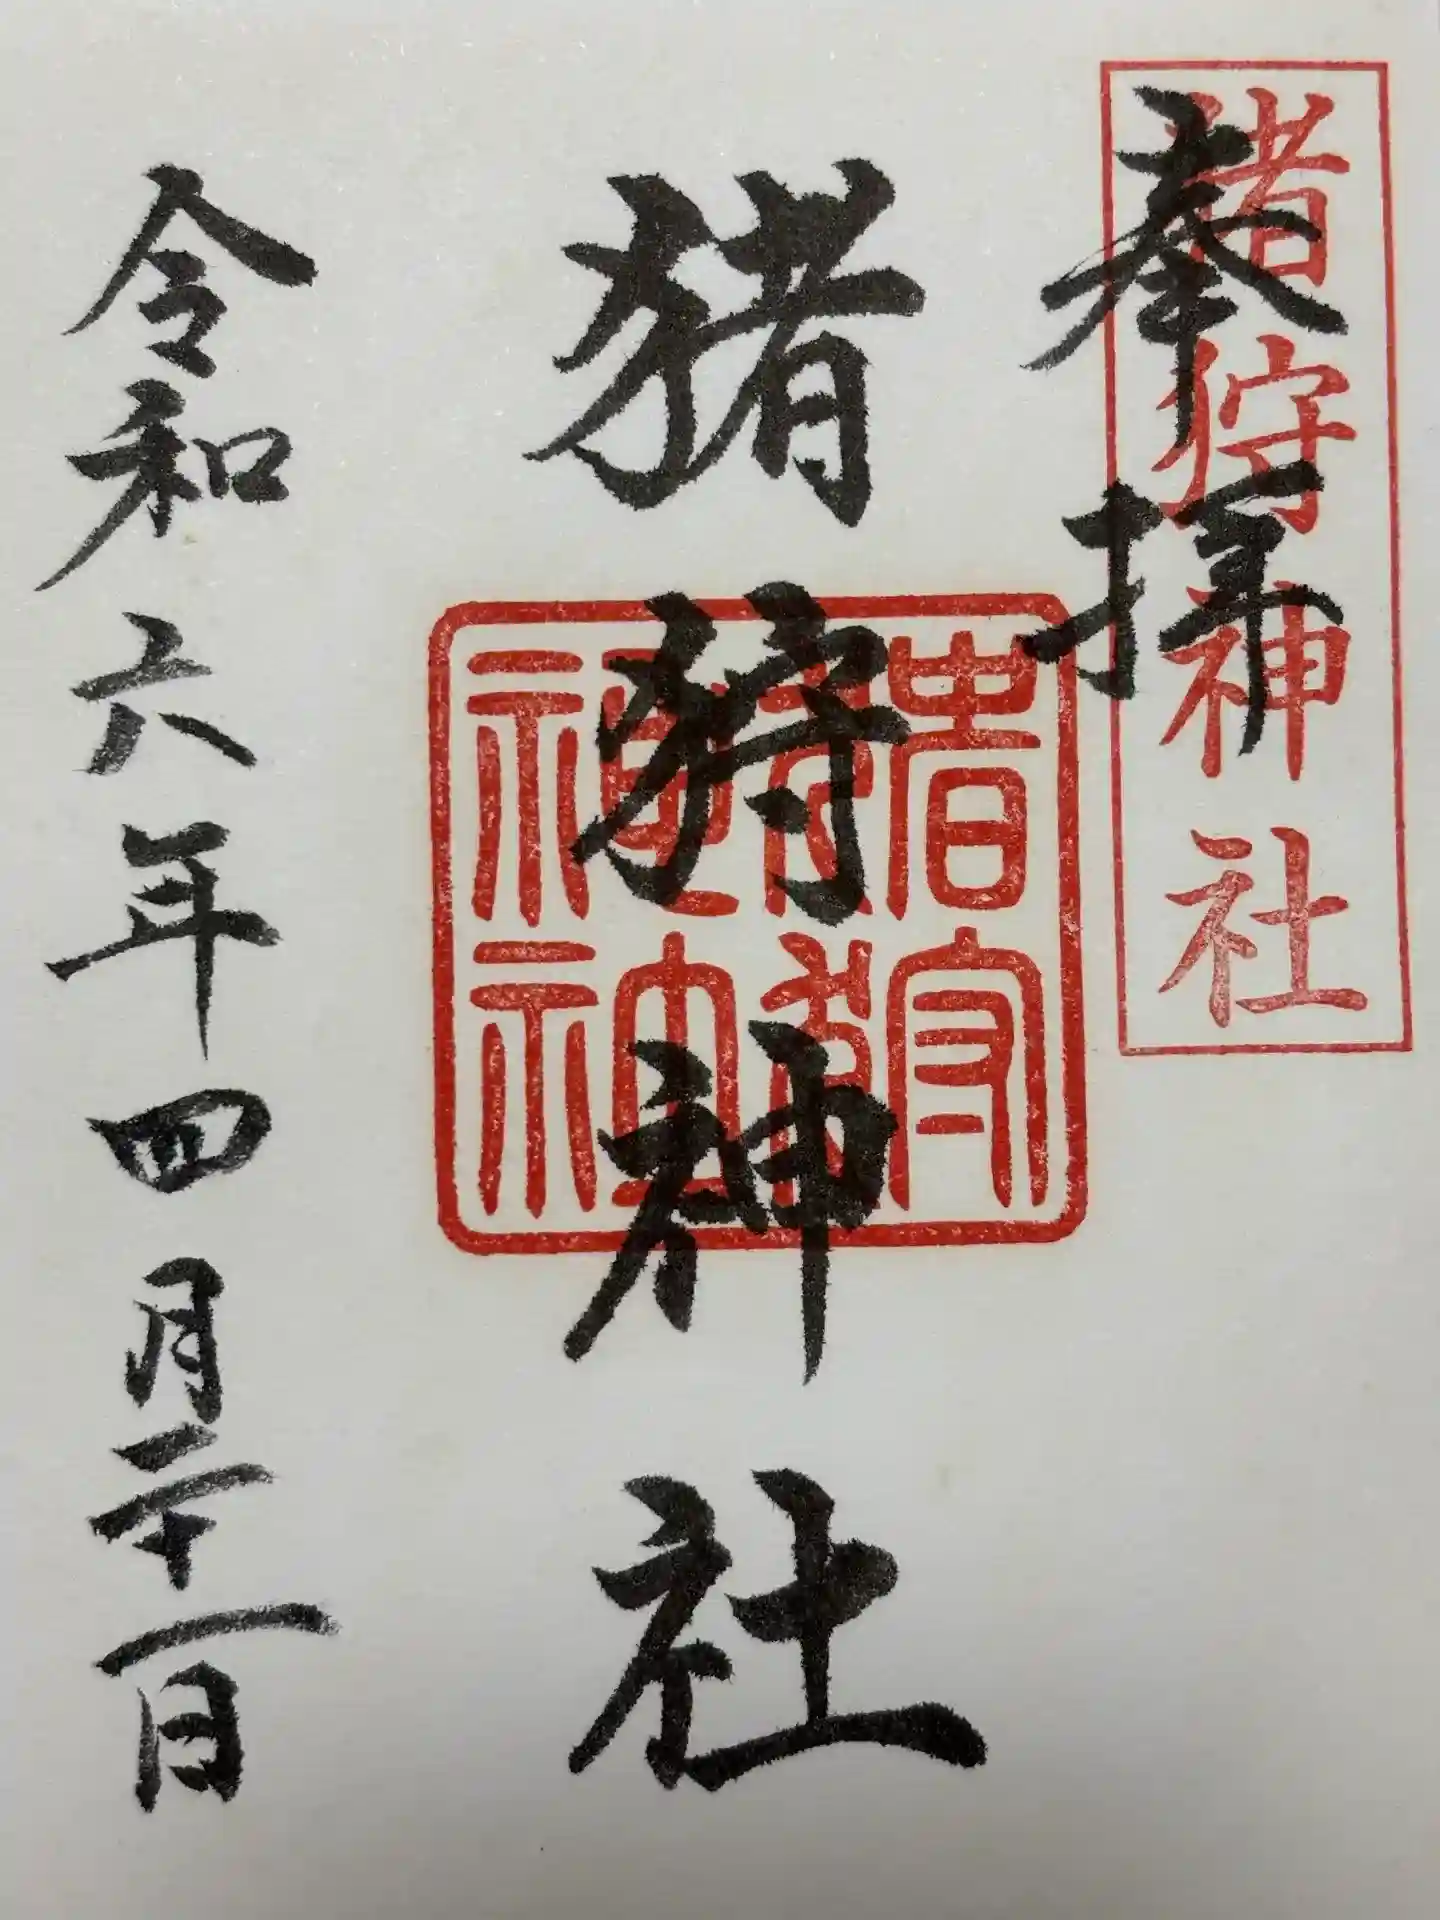 奉拝
猪狩神社
猪狩神社
令和六年四月二十一日